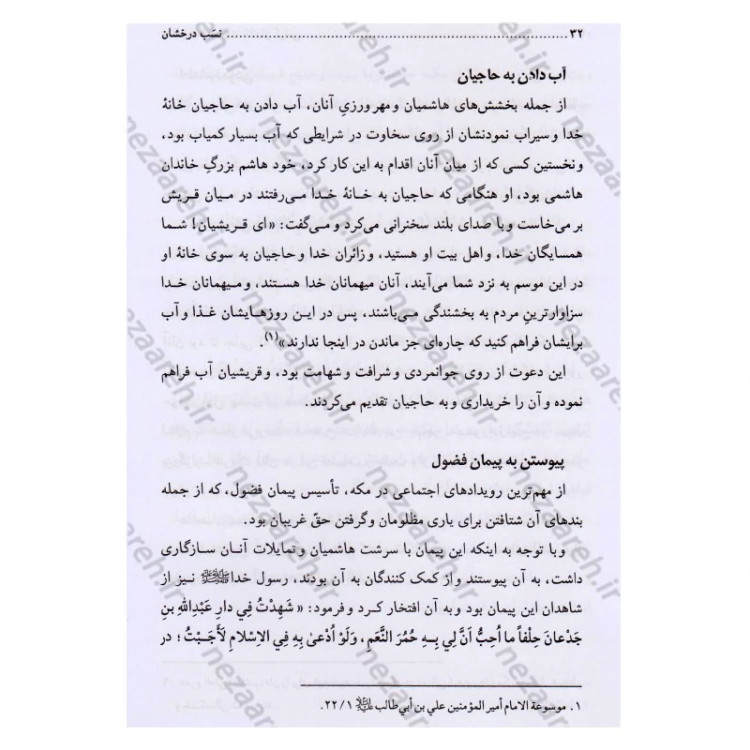 ۳۲ ........................................................................ نسَب درخشان
آب دادن به حاجیان
از جمله بخشش‌های هاشمیان و مهرورزیِ آنان، آب دادن به حاجیان خانهٔ
خدا و سیراب نمودنشان از روی سخاوت در شرایطی که آب بسیار کمیاب بود،
و نخستین کسی که از میان آنان اقدام به این کار کرد، خود هاشم بزرگِ خاندان
هاشمی بود، او هنگامی که حاجیان به خانهٔ خدا می‌رفتند در میان قریش
بر می‌خاست و با صدای بلند سخنرانی می‌کرد و می‌گفت: «ای قریشیان! شما
همسایگان خدا، و اهل بیت او هستید، و زائران خدا و حاجیان به سوی خانهٔ او
در این موسم به نزد شما می‌آیند، آنان میهمانان خدا هستند، و میهمانان خدا
سزاوارترینِ مردم به بخشندگی می‌باشند، پس در این روزهایشان غذا و آب
برایشان فراهم کنید که چاره‌ای جز ماندن در اینجا ندارند»(۱).
این دعوت از روی جوانمردی و شرافت و شهامت بود، و قریشیان آب فراهم
نموده و آن را خریداری و به حاجیان تقدیم می‌کردند.
پیوستن به پیمان فضول
از مهم‌ترین رویدادهای اجتماعی در مکه، تأسیس پیمان فضول، که از جمله
بندهای آن شتافتن برای یاری مظلومان و گرفتن حقّ غریبان بود.
و با توجه به اینکه این پیمان با سرشت هاشمیان و تمایلات آنان سازگاری
داشت، به آن پیوستند و از کمک کنندگان به آن بودند، رسول خداﷺ نیز از
شاهدان این پیمان بود و به آن افتخار کرد و فرمود: «شَهِدْتُ فِي دارِ عَبْدِاللهِ بنِ
جَدْعانَ حِلْفاً ما أُحِبُّ أَنَّ لِي بِـهِ حُمُرَ النَّعَمِ، وَلَوْ أُدْعىٰ بِهِ فِي الاِسْلامِ لَأَجَبْتُ؛ در
۱. موسوعة الامام أمير المؤمنين علي بن أبي طالب ﵇ ۱/ ۲۲.
nezaareh.ir